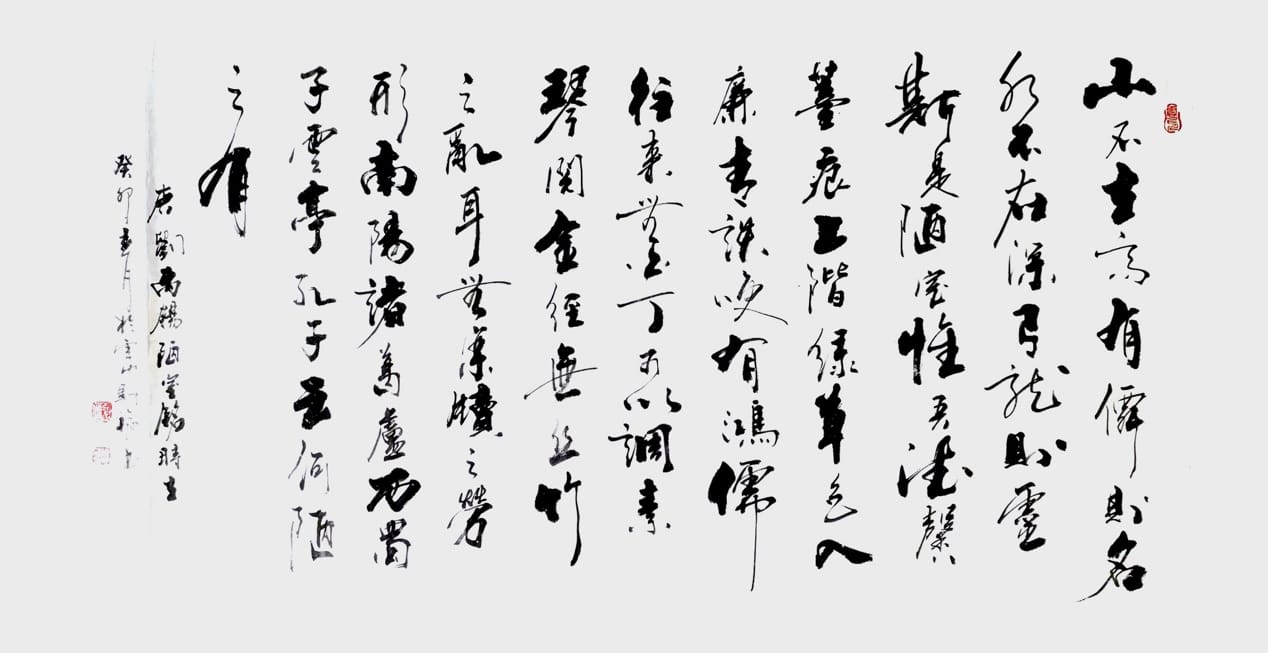 山不在高有僊則名
水不在深有龍則靈
斯是陋室惟吾德馨
薹痕上階綠草色入
廉青談咲有鴻儒
往來無白丁可以調素
琴閱金經無絲竹
之亂耳無案牘之勞
形南陽諸葛廬西蜀
子雲亭孔子云何陋
之有
唐劉禹錫陋室銘時在
癸卯春月於雲山